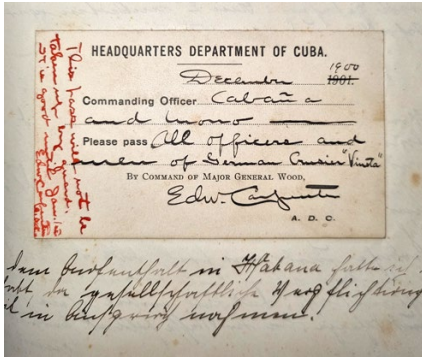 HEADQUARTERS DEPARTMENT OF CUBA.
December 1900 1901.
Commanding Officer Cabaña
and Morro
Please pass All officers and
men of German Cruiser "Vineta"
BY COMMAND OF MAJOR GENERAL WOOD,
Edw. Carpenter
A. D. C.
This pass will not be
taken up by guard.
It is good until Jan.
Edw Carpenter
dem Aufenthalt in Habana hatte ich
die gesellschaftliche Verpflichtung
in Anspruch nahmen.